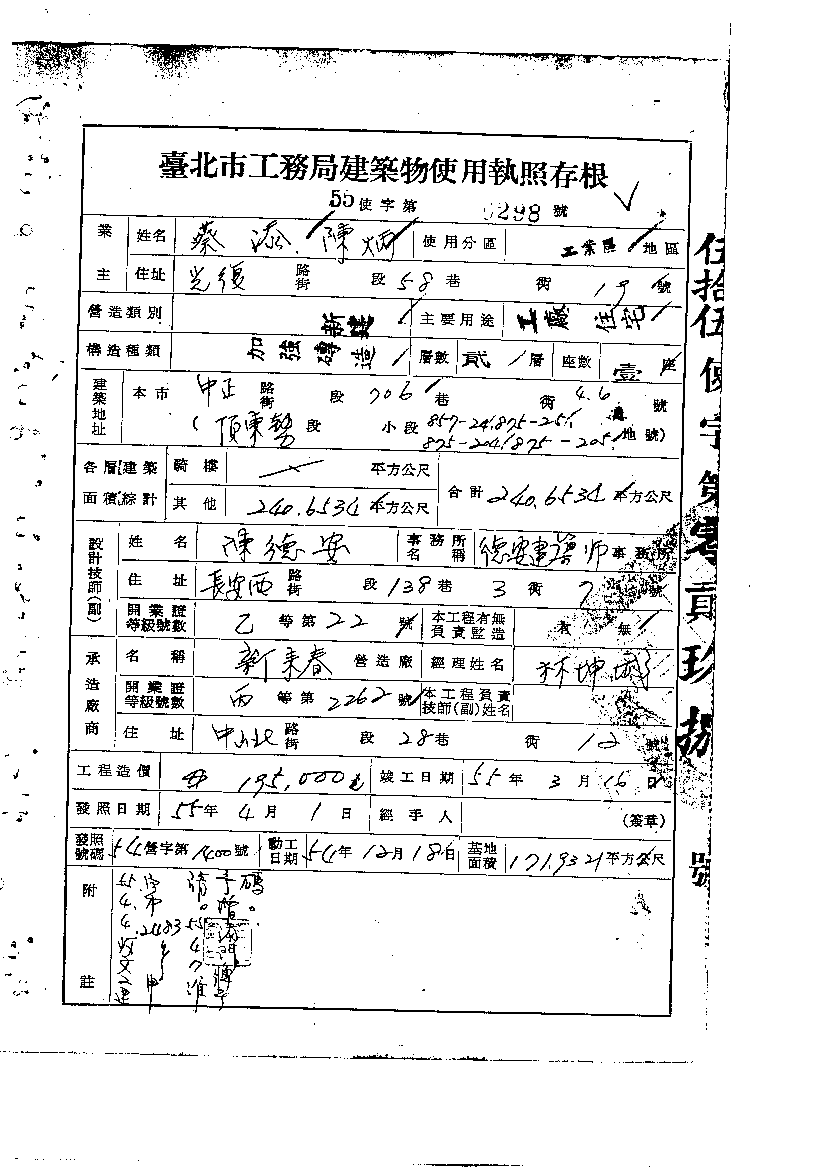 臺北市工務局建築物使用執照存根
55使字第 0298 號
業主 姓名 蔡添 陳炳 使用分區 工業區 地區
住址 光復 路街 段 58 巷 衖 19 號
營造類別 新建 主要用途 工廠 住宅
構造種類 加強磚造 層數 貳 層 座數 壹 座
建築地址 本市 中正 路街 段 706 巷 衖 4.6 號
(頂東勢 段 小段 857-24,875-25,
875-204,875-205 地號)
各層建築面積綜計 騎樓 平方公尺 合計 240.6534 平方公尺
其他 240.6534 平方公尺
設計技師(副) 姓名 陳德安 事務所名稱 德安建築師事務所
住址 長安西 路街 段 138 巷 3 衖 7 號
開業證等級號數 乙 等第 22 號 本工程有無負責監造 有 無
承造廠商 名稱 新東春 營造廠 經理姓名 林坤
開業證等級號數 丙 等第 2262 號 本工程負責技師(副)姓名
住址 中山北 路街 段 28 巷 衖 12 號
工程造價 195,000 竣工日期 55 年 3 月 16 日
發照日期 55 年 4 月 1 日 經手人 (簽章)
發照號碼 54 營字第 1400 號 動工日期 54 年 12 月 18 日 基地面積 171.9321 平方公尺
附註
伍拾伍使字第零貳玖捌號